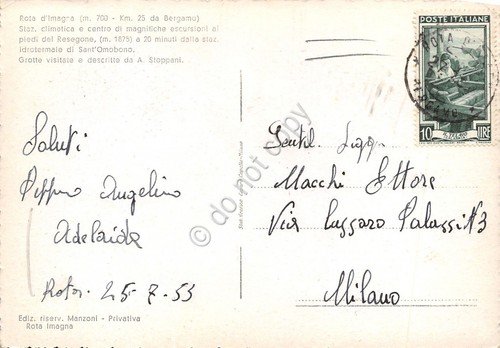 Rota d'Imagna (m. 700 - Km. 25 da Bergamo)
Staz. climatica e centro di magnifiche escursioni ai
piedi del Resegone, (m. 1876) a 20 minuti dalla staz.
idrotermale di Sant'Omobono.
Grotte visitate e descritte da A. Stoppani.
Saluti
Peppino Angelino
Adelaide
Rota 25-7-53
Ediz. riserv. Manzoni - Privativa
Rota Imagna
POSTE ITALIANE
10 LIRE
Gentil. Sigg.
Macchi Ettore
Via Lazzaro Palazzi N 3
Milano
do not copy